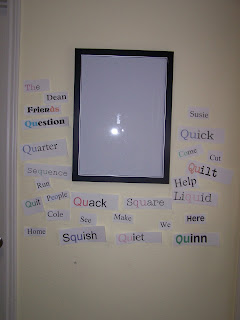 The
Dean
Friends
Question
Quarter
Sequence
Run
Quit
People
Cole
Home
Quack
See
Squish
Square
Make
Quiet
We
Susie
Quick
Come
Cut
Quilt
Help
Liquid
Here
Quinn